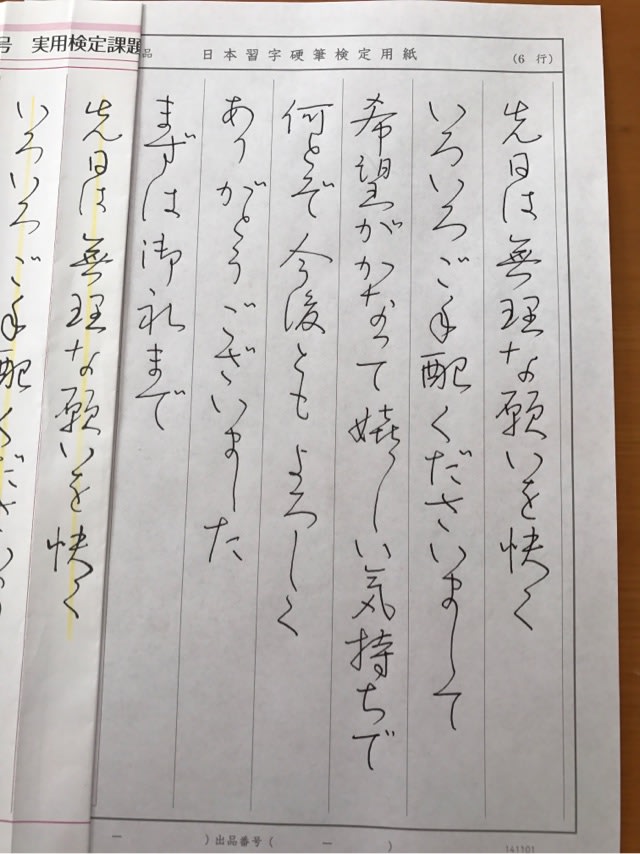 日本習字硬筆検定用紙
(6 行)
先日は無理な願いを快く
いろいろご手配くださいまして
希望がかなって嬉しい気持ちで
何とぞ今後ともよろしく
ありがとうございました
まずは御礼まで
)出品番号( ー )
141101
号 実用検定課題
品
先日は無理な願いを快く
いろいろご手配くださいま